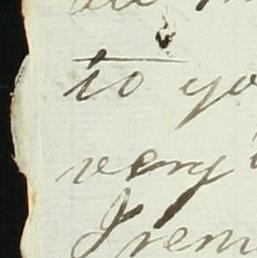 to yo
very
I rem